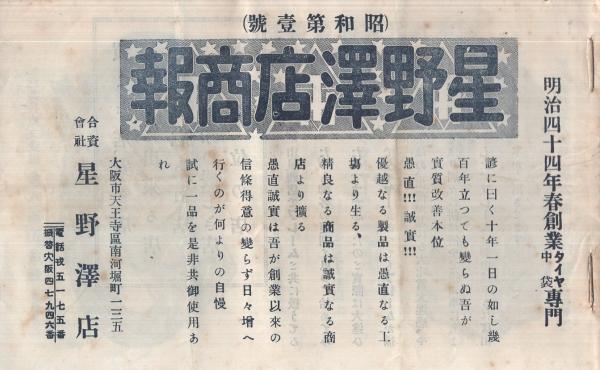 (昭和第壹號)
星野澤店商報
明治四十四年春創業タイヤ中袋專門
諺に曰く十年一日の如し幾
百年立つても變らぬ吾が
實質改善本位
愚直!!!誠實!!!
優越なる製品は愚直なる工
場より生る、
精良なる商品は誠實なる商
店より擴る
愚直誠實は吾が創業以來の
信條得意の變らず日々增へ
行くのが何よりの自慢
試に一品を是非共御使用あ
れ
大阪市天王寺區南河堀町一三五
合資會社 星野澤店
電話戎五一七五番
振替大阪四七九四六番